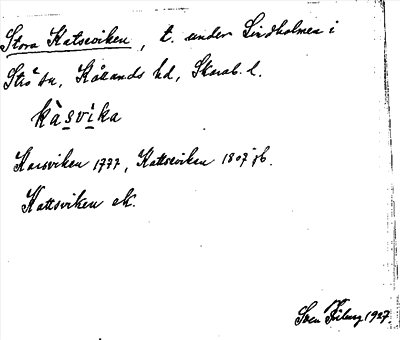 Stora Katseviken, t. under Lindholmen i
Strö sn, Kållands hd, Skarab. l.
kàsvìka
Karsviken 1777, Kattseviken 1807 jb.
Kattsviken ek.
Sven 1927.